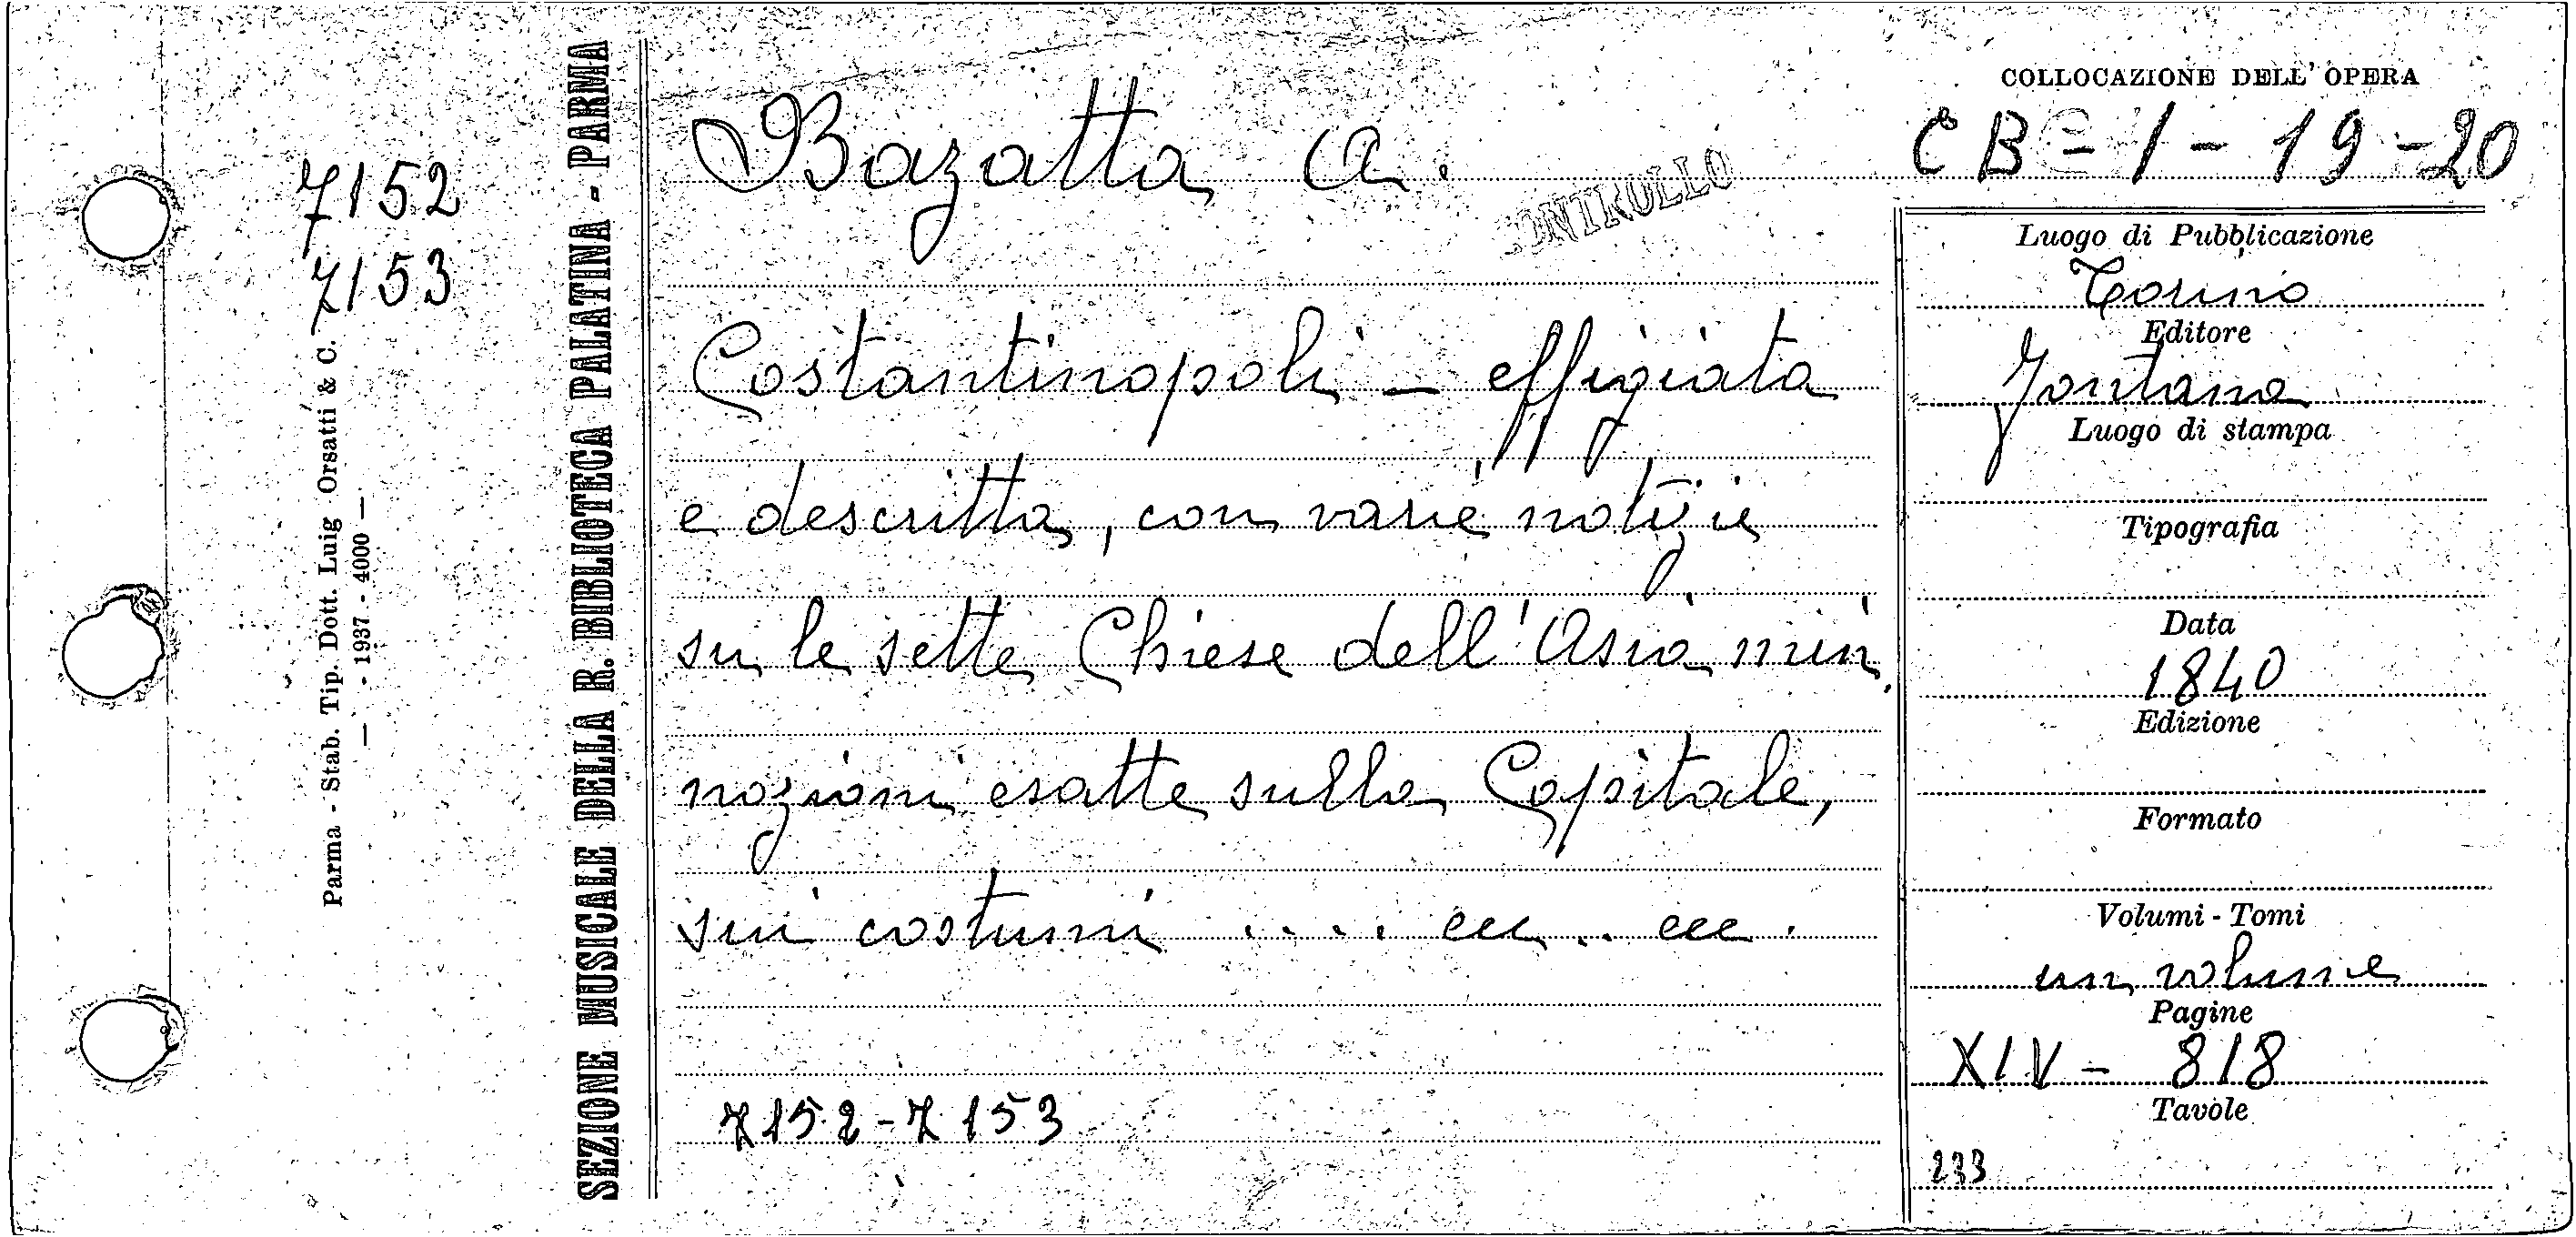 COLLOCAZIONE DELL' OPERA
CB - 1 - 19 - 20
Bazatta A.
CONTROLLO
7152
7153
Parma - Stab. Tip. Dott. Luig Orsatti & C.
— - 1937 - 4000 —
SEZIONE MUSICALE DELLA R. BIBLIOTECA PALATINA - PARMA
Costantinopoli - effigiata
e descritta, con varie notizie
su le sette Chiese dell'Asia min.
nozioni esatte sulla Capitale,
sui costumi .... ecc .. ecc.
7152-7153
Luogo di Pubblicazione
Torino
Editore
Fontana
Luogo di stampa
Tipografia
Data
1840
Edizione
Formato
Volumi - Tomi
un volume
Pagine
XIV - 818
Tavole
233